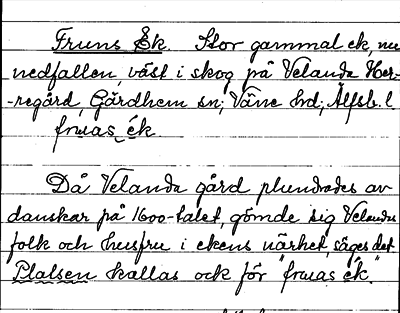 Fruns Ek. Stor gammal ek, nu
nedfallen, väst i skog på Velanda Her-
-regård, Gärdhem sn; Väne hd; Älfsb. l
fruas ék
Då Velanda gård plundrades av
danskar på 1600-talet, gömde sig Velandas
folk och husfru i ekens närhet, säges det
Platsen kallas ock för "fruas ék."